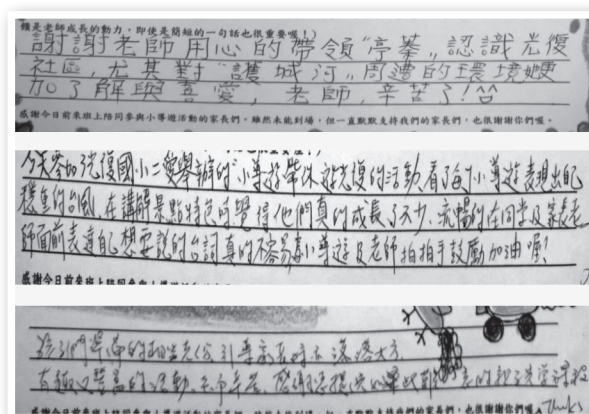 饋是老師成長的動力，即使是簡短的一句話也很重要喔！)
謝謝老師用心的帶領"亭蓁"認識光復
社區，尤其對"護城河"周遭的環境她更
加了解與喜愛，老師，辛苦了!^^
感謝今日前來班上陪同參與小導遊活動的家長們。雖然未能到場，但一直默默支持我們的家長們，也很謝謝你們喔。
今天參加光復國小二愛舉辦的"小導遊帶休遊光復的活動看了每小導遊表現出自己
穩重的台風,在講解景點特色時覺得他們真的成長了不少,流暢的在同學及家長老
師面前表達自己想要說的台詞真的不容易為小導遊及老師拍拍手鼓勵加油喔!
感謝今日前來班上陪同參與小導遊活動的
孩子們準備的相當充分,引導家長時不落落大方
有趣又豐富的活動,老師辛苦,感謝您提供
的親子共學課程
Thanks